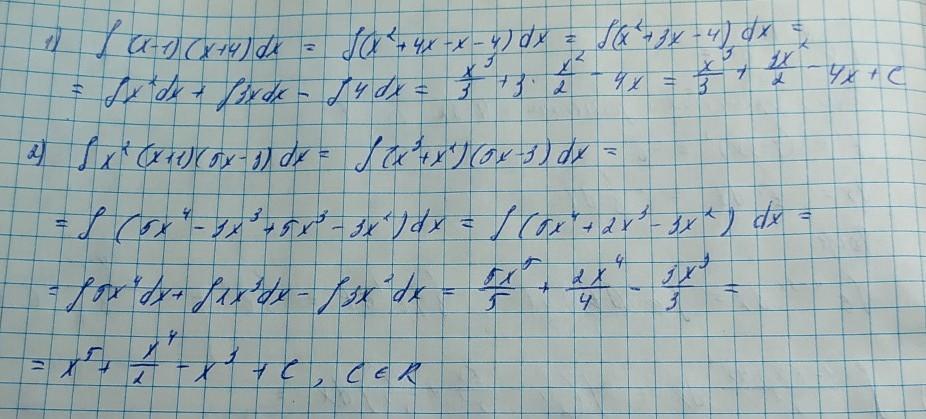 1) ∫(x-1)(x+4)dx = ∫(x²+4x-x-4)dx = ∫(x²+3x-4)dx =
= ∫x²dx + ∫3xdx - ∫4dx = x³/3 + 3·x²/2 - 4x = x³/3 + 3x²/2 - 4x + C
2) ∫x²(x+1)(5x-3)dx = ∫(x³+x²)(5x-3)dx =
= ∫(5x⁴-3x³+5x³-3x²)dx = ∫(5x⁴+2x³-3x²)dx =
= ∫5x⁴dx + ∫2x³dx - ∫3x²dx = 5x⁵/5 + 2x⁴/4 - 3x³/3 =
= x⁵ + x⁴/2 - x³ + C, C∈R